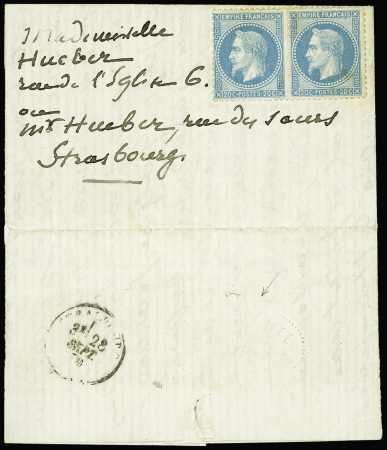 Mademoiselle
Hueber
rue de l'Eglise 6.
ou
Mr Hueber, rue des Sœurs
Strasbourg.
EMPIRE FRANÇAIS
20C-POSTES-20C
EMPIRE FRANÇAIS
20C-POSTES-20C
28
SEPT.
70